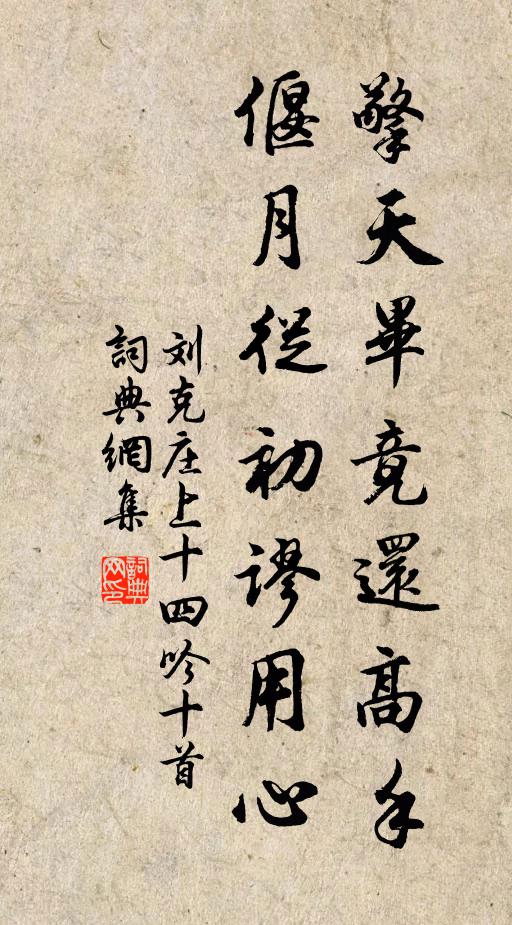 擎天畢竟還高手
偃月從初謬用心
刘克庄上十四吟十首
詞典網集
詞典網印